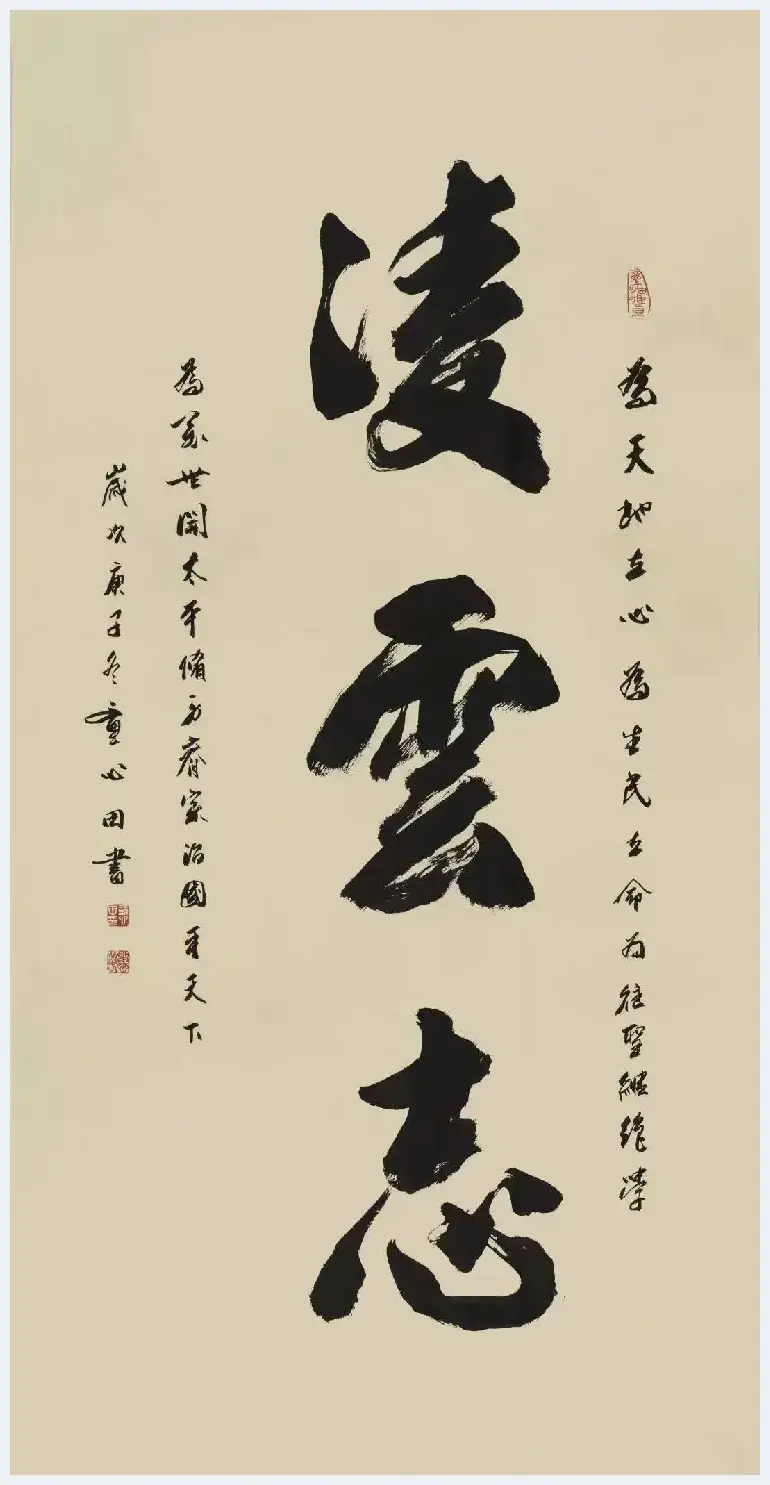 為天地立心為生民立命為往聖繼絕學
凌雲志
為萬世開太平脩身齊家治國平天下
歲次庚子冬童心田書